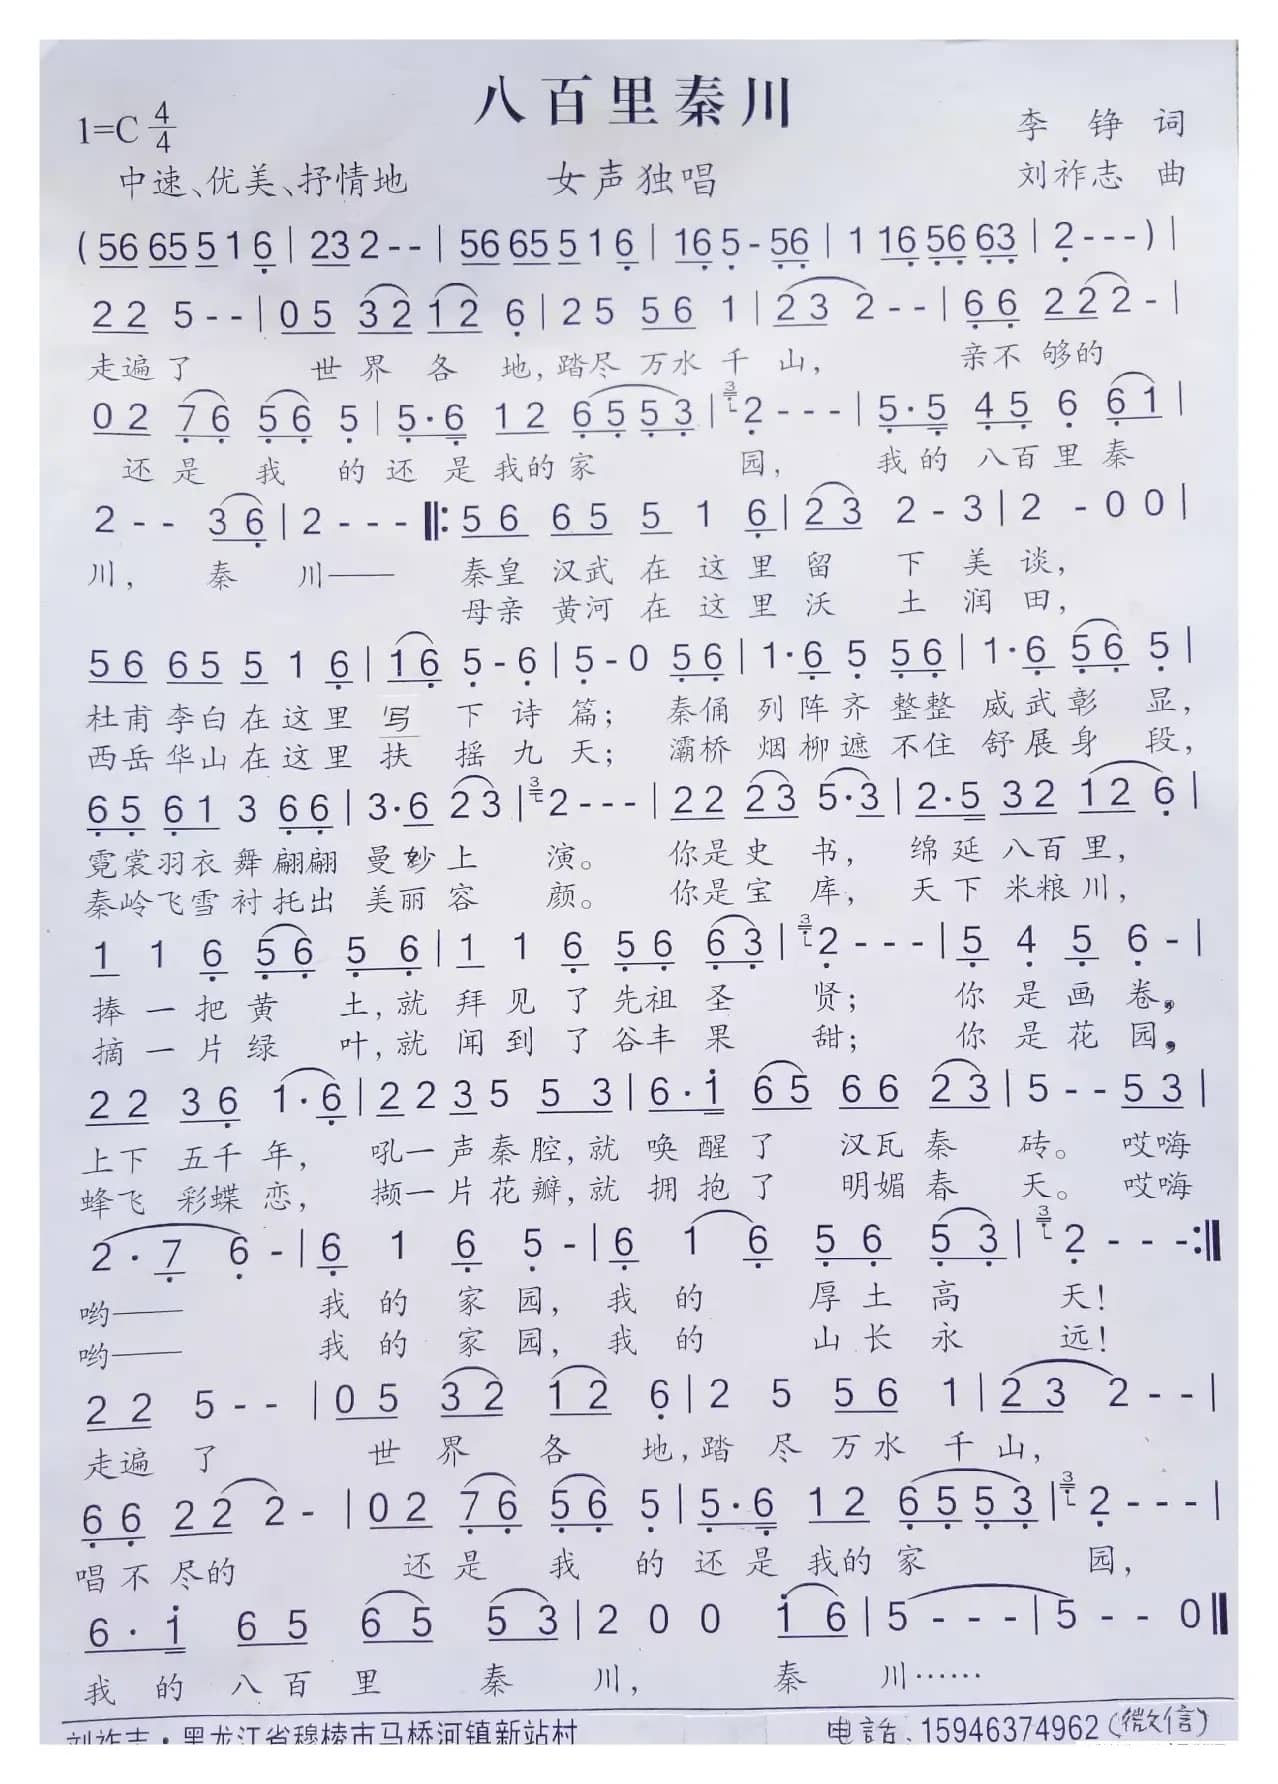 八百里秦川
1=C 4/4
李 铮 词
中速、优美、抒情地 女声独唱 刘祚志 曲
(56 65 5 1 6 | 23 2 - - | 56 65 5 1 6 | 16 5 - 56 | 1 16 56 63 | 2 - - - ) |
2 2 5 - - | 0 5 3 2 1 2 6 | 2 5 5 6 1 | 2 3 2 - - | 6 6 2 2 2 - |
走遍了 世界各地,踏尽万水千山, 亲不够的
0 2 7 6 5 6 5 | 5·6 1 2 6 5 5 3 | 3 2 - - - | 5·5 4 5 6 6 1 |
还是我的还是我的家 园, 我的八百里秦
2 - - 3 6 | 2 - - - ‖: 5 6 6 5 5 1 6 | 2 3 2 - 3 | 2 - 0 0 |
川, 秦 川—— 秦皇汉武在这里留下美谈,
母亲黄河在这里沃土润田,
5 6 6 5 5 1 6 | 1 6 5 - 6 | 5 - 0 5 6 | 1·6 5 5 6 | 1·6 5 6 5 |
杜甫李白在这里写下诗篇; 秦俑列阵齐整整威武彰显,
西岳华山在这里扶摇九天; 灞桥烟柳遮不住舒展身段,
6 5 6 1 3 6 6 | 3·6 2 3 | 3 2 - - - | 2 2 2 3 5·3 | 2·5 3 2 1 2 6 |
霓裳羽衣舞翩翩曼妙上演。 你是史书, 绵延八百里,
秦岭飞雪衬托出美丽容颜。 你是宝库, 天下米粮川,
1 1 6 5 6 5 6 | 1 1 6 5 6 6 3 | 3 2 - - - | 5 4 5 6 - |
捧一把黄土,就拜见了先祖圣贤; 你是画卷,
摘一片绿叶,就闻到了谷丰果甜; 你是花园,
2 2 3 6 1·6 | 2 2 3 5 5 3 | 6·1 6 5 6 6 2 3 | 5 - - 5 3 |
上下五千年, 吼一声秦腔,就唤醒了汉瓦秦砖。哎嗨
蜂飞彩蝶恋, 撷一片花瓣,就拥抱了明媚春天。哎嗨
2·7 6 - | 6 1 6 5 - | 6 1 6 5 6 5 3 | 3 2 - - - :‖
哟—— 我的家园, 我的厚土高天!
哟—— 我的家园, 我的山长永远!
2 2 5 - - | 0 5 3 2 1 2 6 | 2 5 5 6 1 | 2 3 2 - - |
走遍了 世界各地,踏尽万水千山,
6 6 2 2 2 - | 0 2 7 6 5 6 5 | 5·6 1 2 6 5 5 3 | 3 2 - - - |
唱不尽的 还是我的还是我的家 园,
6·1 6 5 6 5 5 3 | 2 0 0 1 6 | 5 - - - | 5 - - 0 ‖
我的八百里秦川, 秦川……
刘祚志·黑龙江省穆棱市马桥河镇新站村 电话、15946374962(微信)